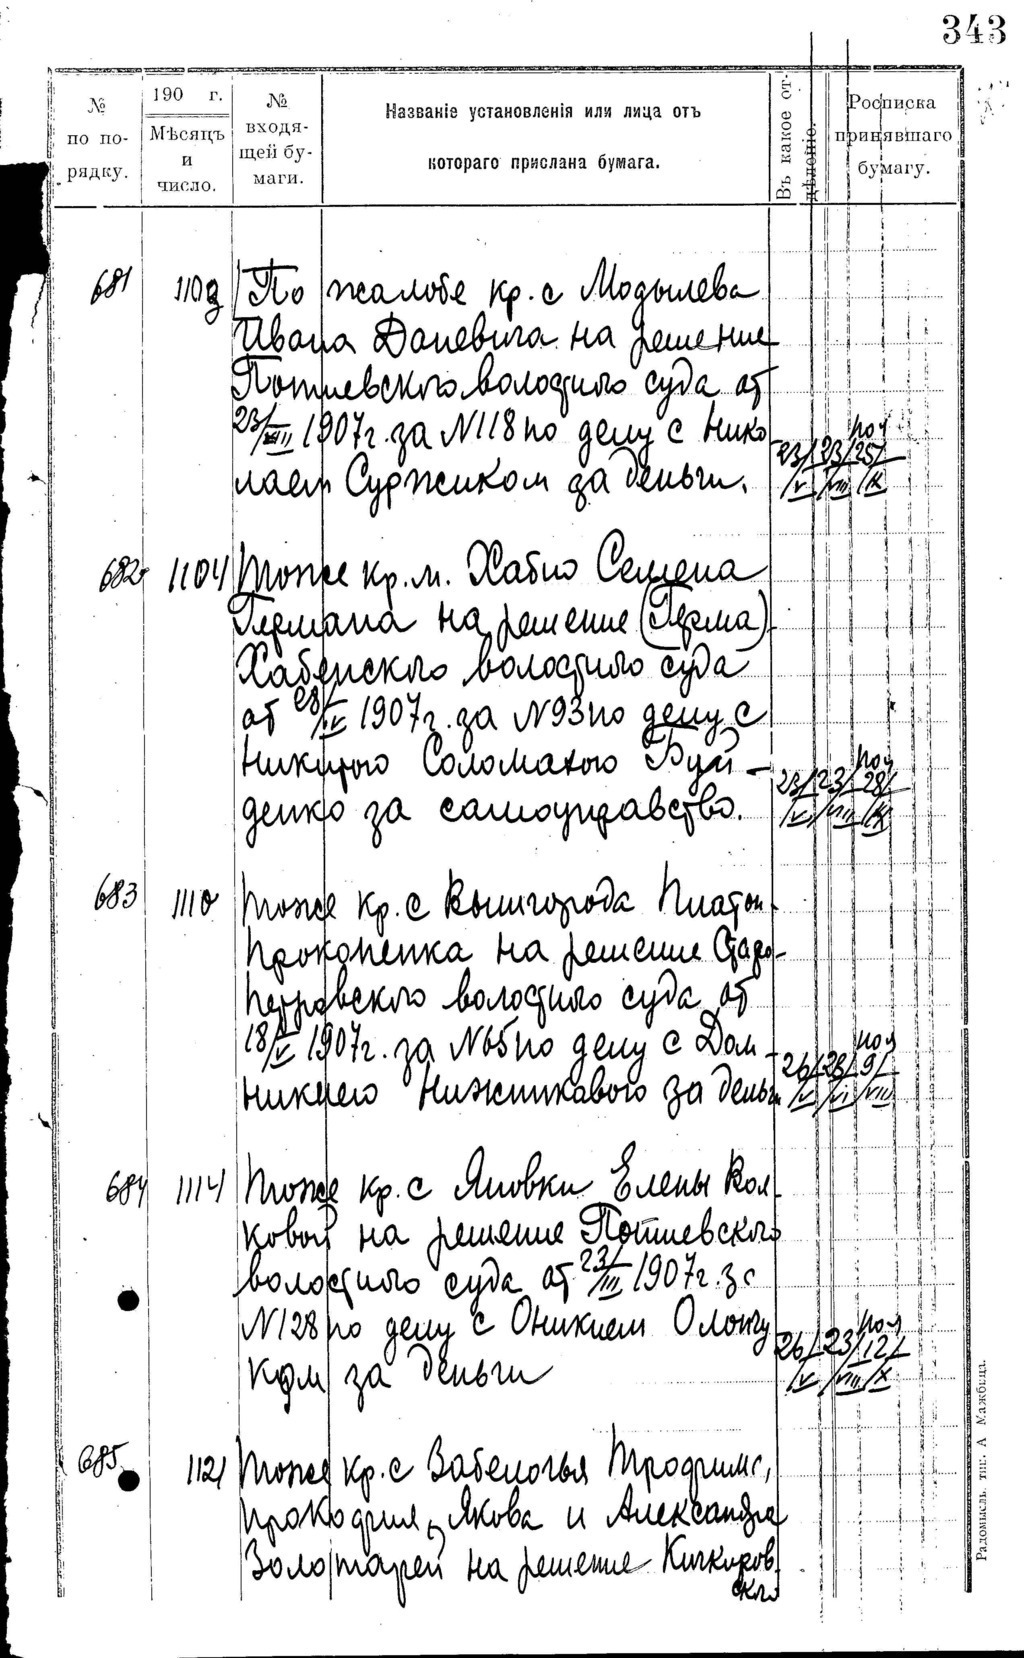 343
№ по порядку.
190 г.
Мѣсяцъ и число.
№ входящей бумаги.
Названіе установленія или лица отъ
котораго прислана бумага.
Въ какое отдѣленіе.
Росписка принявшаго бумагу.
681 1103 По жалобе кр. с Модылева
Ивана Даневича на решение
Потиевского волостного суда от
23/VIII 1907г. за N118 по делу с Нико
лаем Суржиком за деньги.
23/V 23/VIII 25/IX
682 1104 Тоже кр. м. Хабно Семена
Германа на решение (Герма)
Хабенского волостного суда
от 28/IV 1907г. за N93 по делу с
Никитою Соломахою Буй
денко за самоуправство.
23/V 23/VII 28/IX
683 1110 Тоже кр. с Вышгорода Платон
Прокопенка на решение Старо-
Петровского волостного суда от
18/V 1907г. за N65 по делу с Дом
никиею за деньги
26/V 28/VI 9/VIII
684 1114 Тоже кр. с Яновки Елены Вол
ковой на решение Потиевского
волостного суда от 23/III 1907г. за
N128 по делу с Оникием
ком за деньги
26/V 23/VIII 12/X
685 1121 Тоже кр. с Забелочья Трофима,
Прокофия, Якова и Александра
Золотарей на решение Кичкиров
ского
Радомысль. тип. А Мажбица.